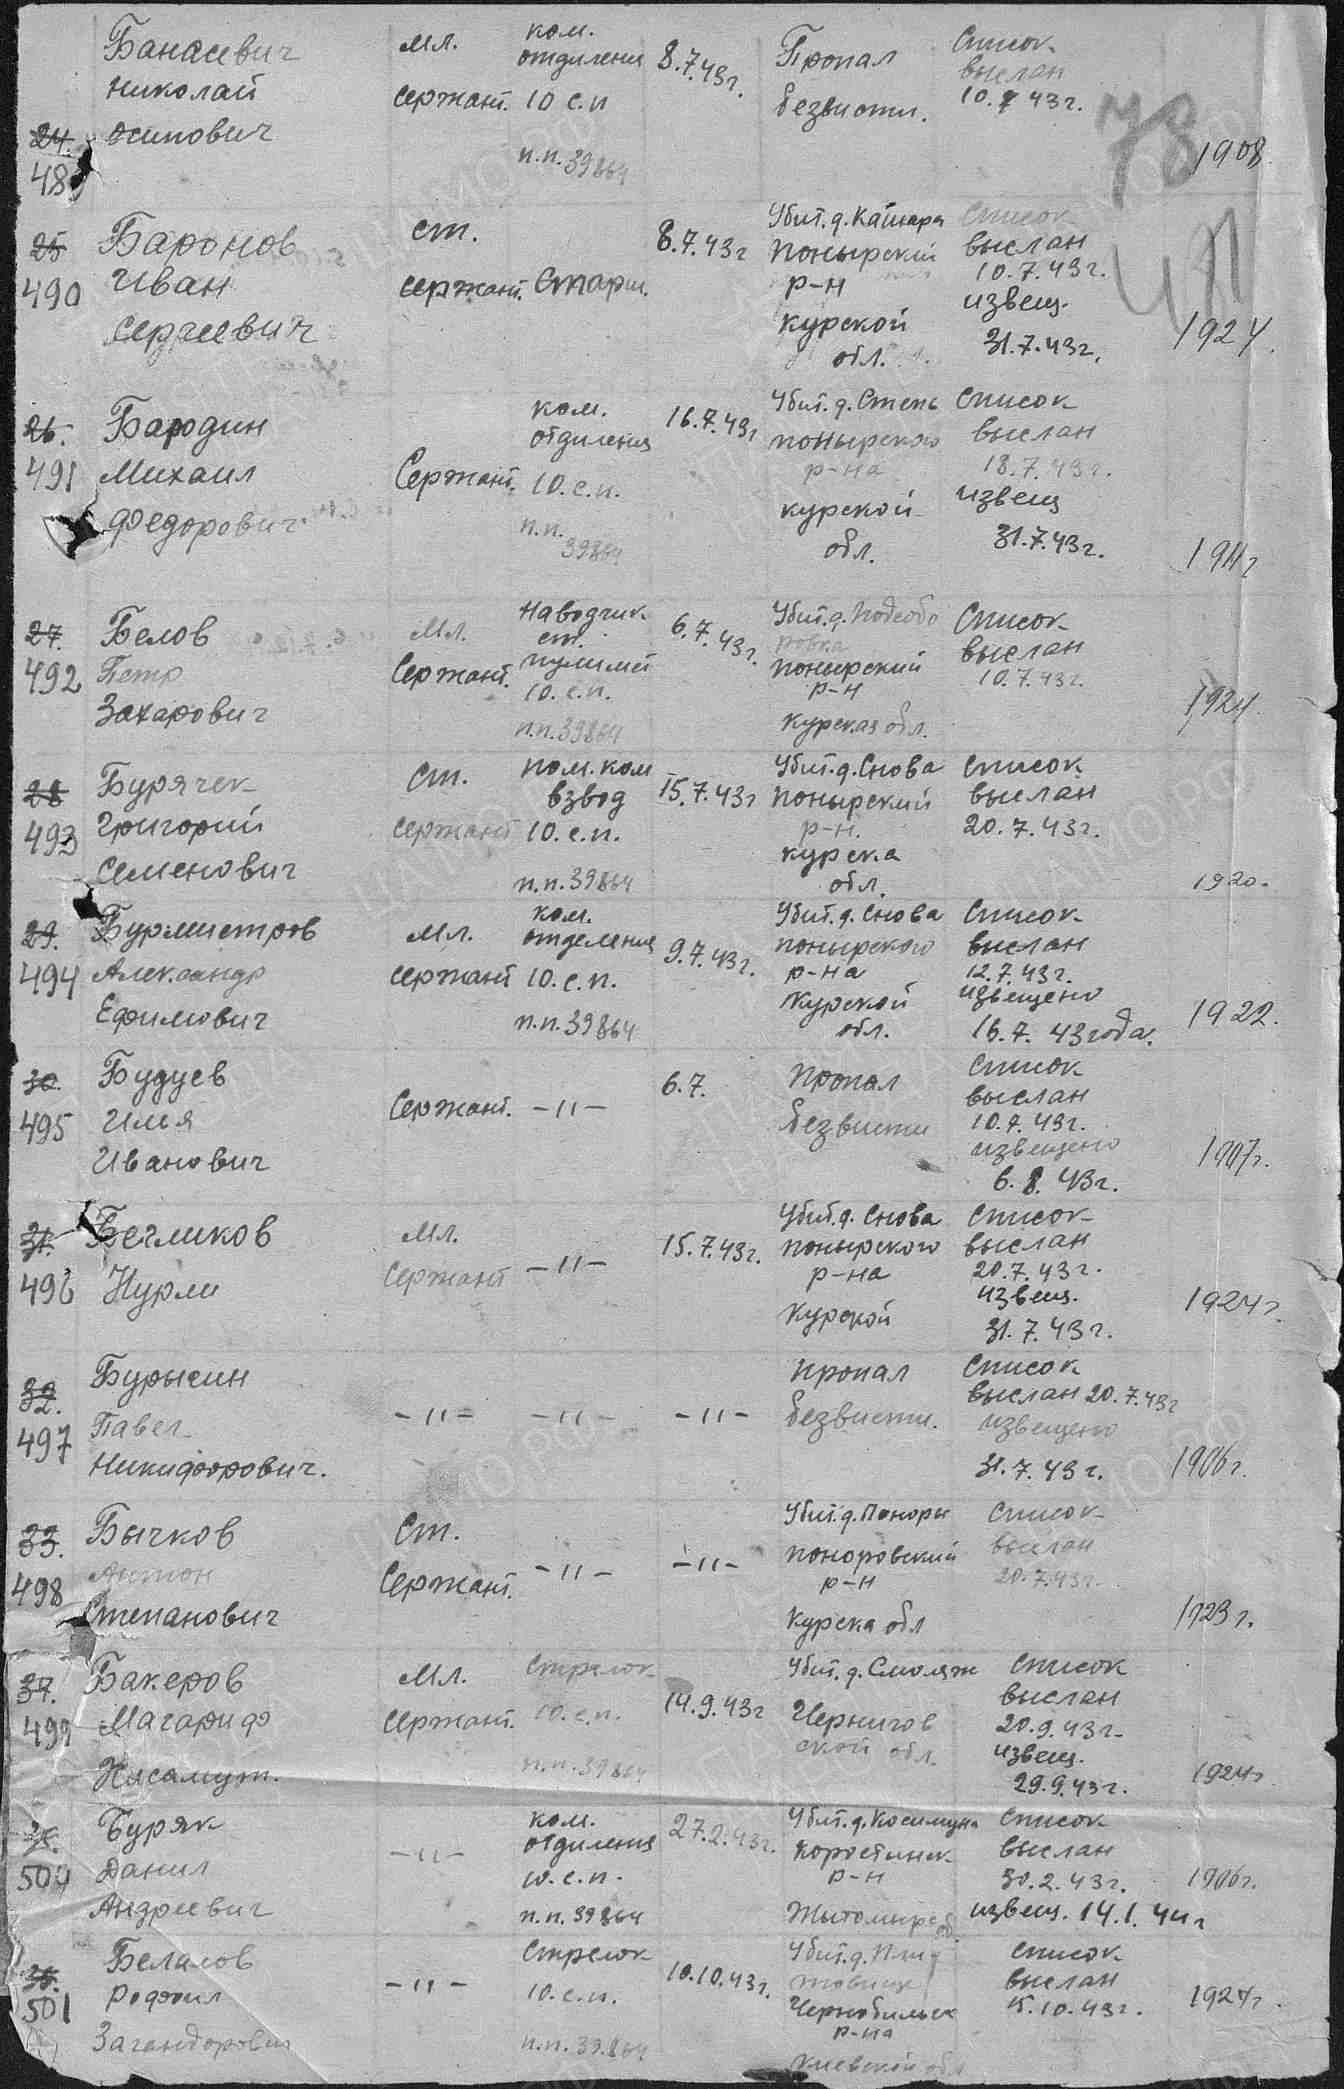 Банасевич
Николай
осипович
24.
48
мл.
сержант.
ком.
отделения
10 с.п
п.п. 39864
8.7.43г.
Пропал
безвисти.
Список
выслан
10.7 43г.
78
1908
25
490
Баронов
Иван
сергеевич
ст.
сержант.
Старш.
8.7.43г
Убит. д. Кашара
понырский
р-н
курской
обл.
Список
выслан
10.7.43г.
извещ.
31.7.43г.
1924.
26.
491
Бародин
Михаил
Федорович
Сержант.
ком.
отделения
10.с.п.
п.п.
39864
16.7.43г
Убит. д. Степь
понырского
р-на
курской
обл.
Список
выслан
18.7.43г.
извещ
31.7.43г.
1911г
27.
492
Белов
Петр
Захарович
мл.
Сержант.
наводчик
ст.
10.с.п.
п.п. 39864
6.7.43г.
Убит. д. Подсобо
ровка
понырский
р-н
Курская обл.
Список
выслан
10.7.43г.
1924
28
493
Бурячек
григорий
семенович
ст.
сержант
пом. ком
взвод
10.с.п.
п.п. 39864
15.7.43г
Убит. д. Снова
понырский
р-н.
курска
обл.
список
выслан
20.7.43г.
1920.
29.
494
Бурмистров
Александр
Ефимович
мл.
сержант
ком.
отделения
10.с.п.
п.п. 39864
9.7.43г.
Убит. д. Снова
понырского
р-на
Курской
обл.
Список
выслан
12.7.43г.
извещено
16.7. 43года.
1922.
30.
495
Будуев
Илья
Иванович
Сержант.
-"-
6.7.
пропал
безвисти
Список
выслан
10.7.43г.
извещено
6.8.43г.
1907г.
31.
496
Бегликов
Нурли
мл.
Сержант
-"-
15.7.43г.
Убит. д. Снова
понырского
р-на
Курской
Список
выслан
20.7.43г.
извещ.
31.7.43г.
1924г.
32.
497
Бурысин
Павел
Никифорович.
-"-
-"-
-"-
пропал
безвисти.
Список
выслан 20.7.43г
извещено
31.7.43г.
1906г.
33.
498
Бычков
Антон
Степанович
Ст.
Сержант.
-"-
-"-
Убит. д. Поноры
поноровский
р-н
Курска обл
Список
выслан
20.7.43г.
1923г.
34.
499
Бакеров
Магариф
мл.
сержант.
Стрелок
10.с.п.
п.п. 39864
14.9.43г
Убит. д. Смоляж
Чернигов
ской обл.
Список
выслан
20.9.43г.
извещ.
29.9.43г.
1924г
500
Буряк
Данил
Андреевич
-"-
ком.
отделения
10.с.п.
п.п. 39864
27.2.43г.
Коростинск
р-н
Список
выслан
30.2.43г.
извещ. 14.1.44г
1906г.
501
Белалов
-"-
Стрелок
10.с.п.
п.п. 39.864
10.10.43г.
Чернобыльск
р-на
киевской обл
список
выслан
15.10.43г.
1924г.